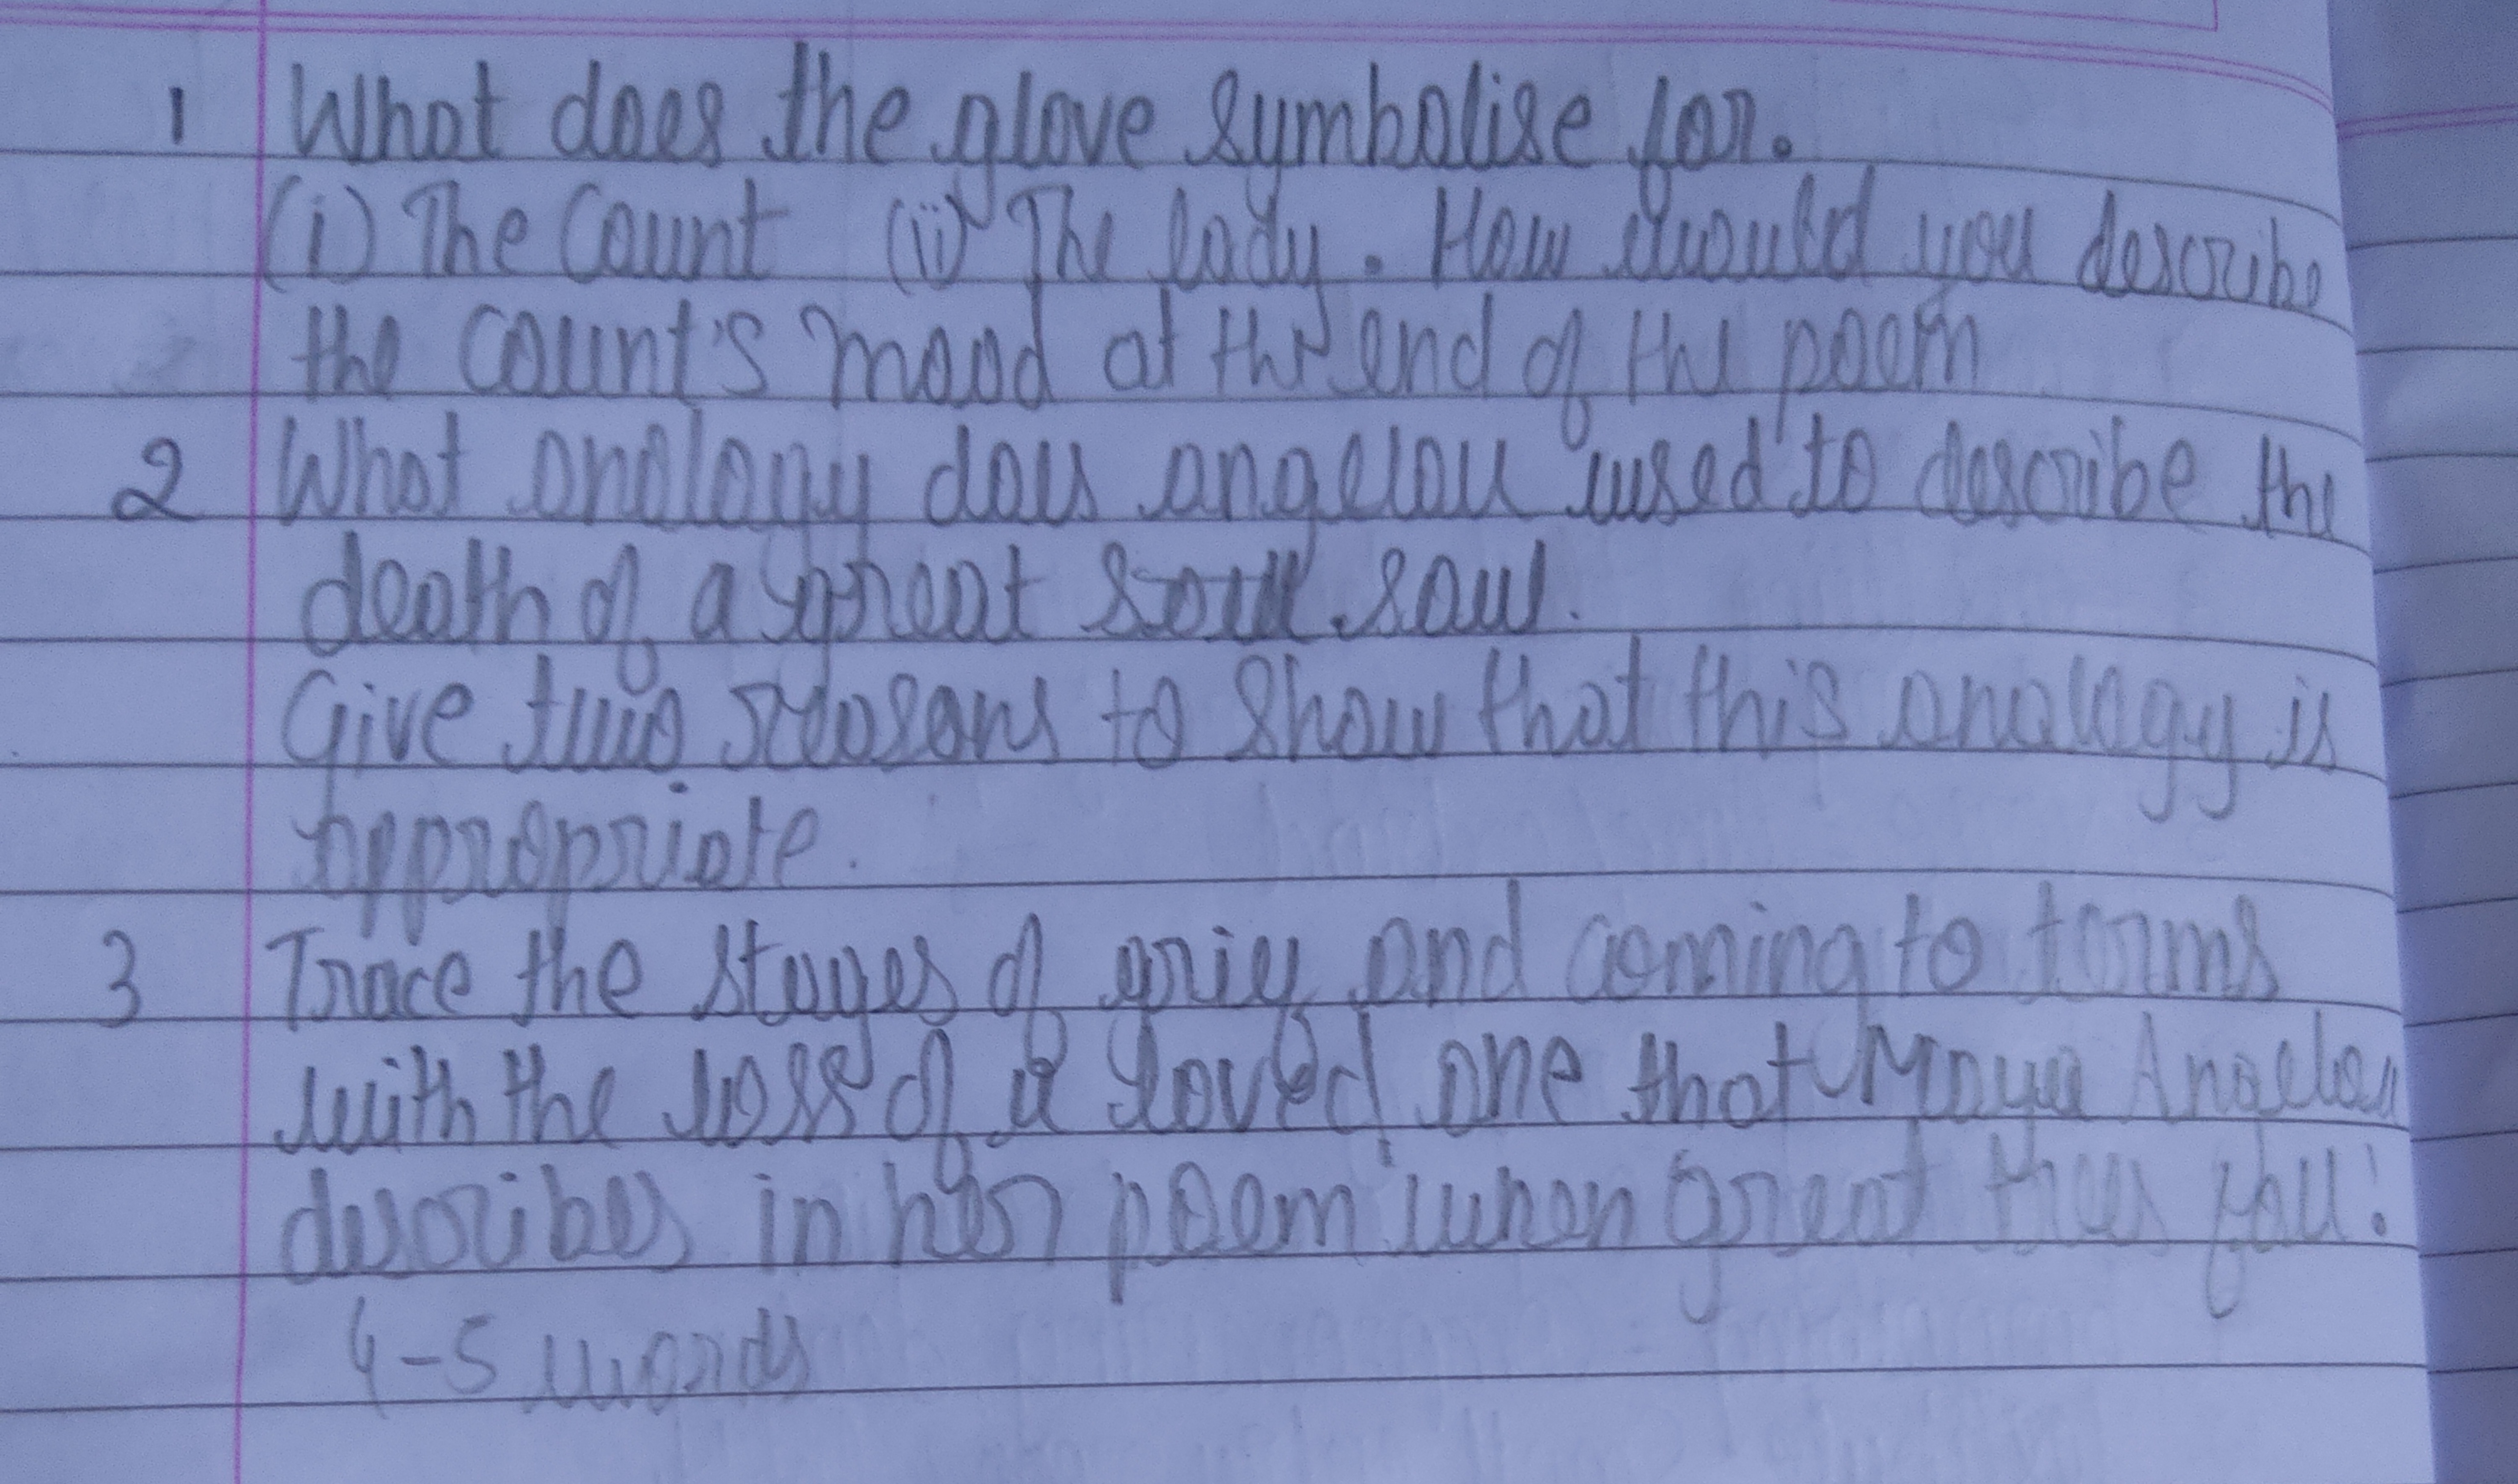 1 What does the glove symbolise for.
(i) The Count (ii) The lady. How would you describe
the count's mood at the end of the poem
2 What analogy does angelou used to describe the
death of a great soul soul.
Give two reasons to show that this analogy is
appropriate.
3 Trace the stages of grief and coming to terms
with the loss of a loved one that Maya Angelou
describes in her poem 'when great trees fall'.
4-5 words